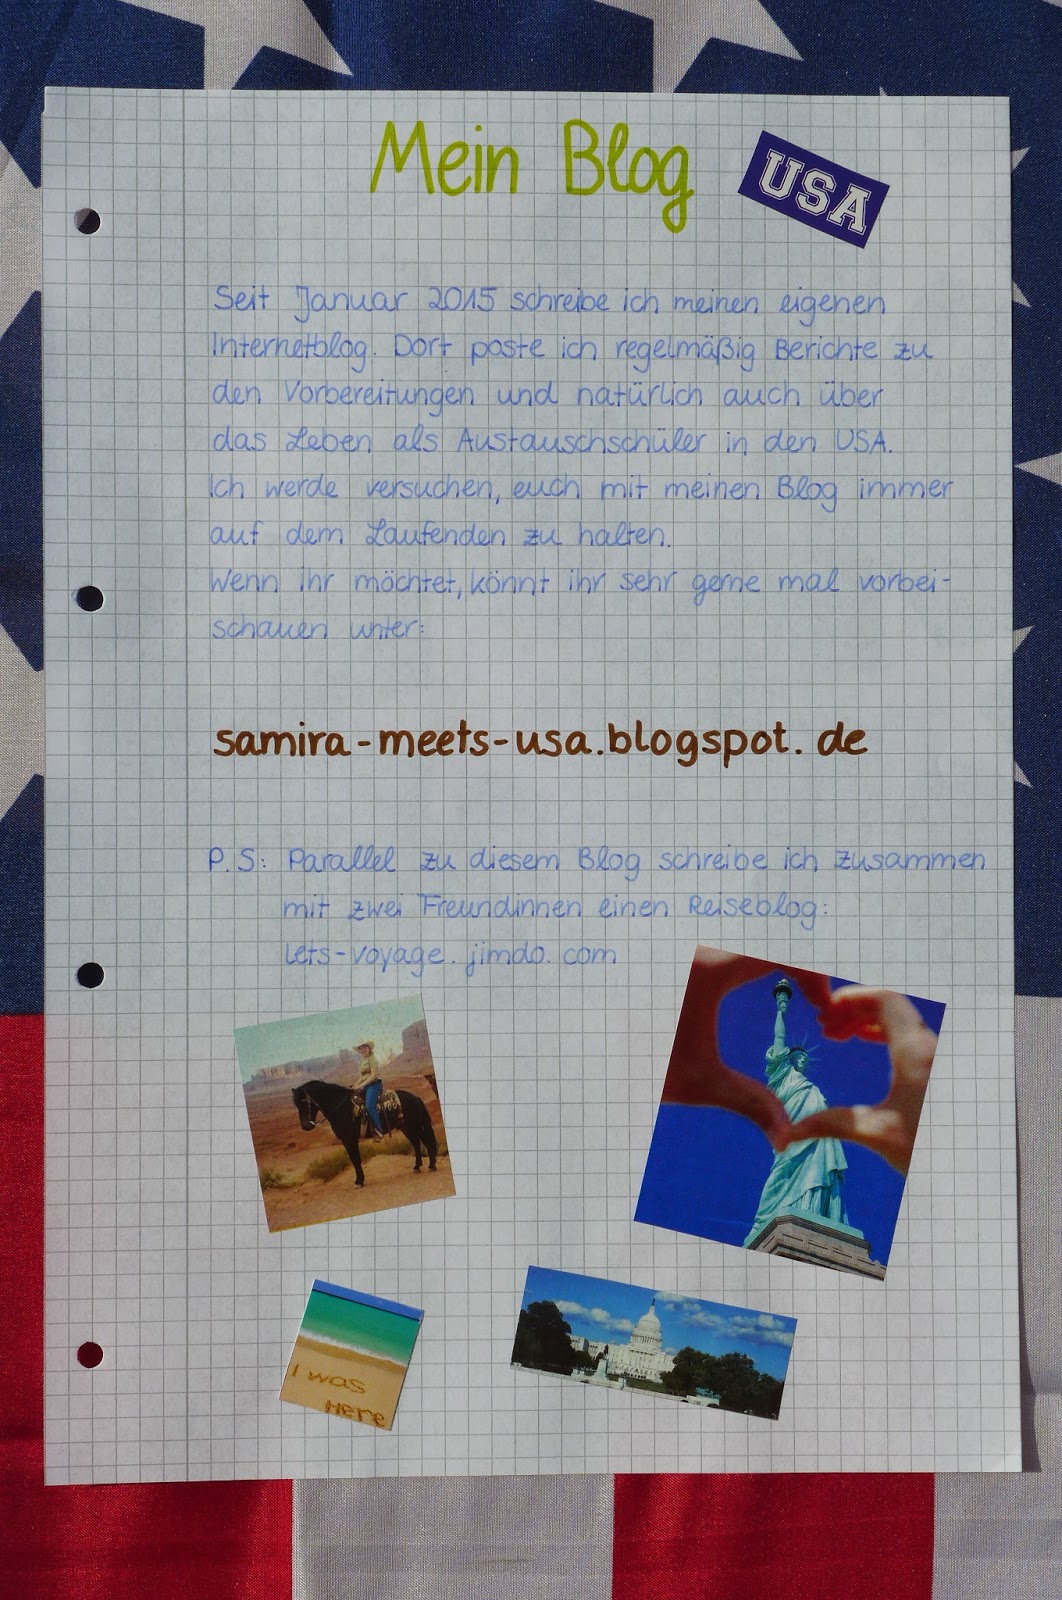 Mein Blog
USA
Seit Januar 2015 schreibe ich meinen eigenen
Internetblog. Dort poste ich regelmäßig Berichte zu
den Vorbereitungen und natürlich auch über
das Leben als Austauschschüler in den USA.
Ich werde versuchen, euch mit meinen Blog immer
auf dem Laufenden zu halten.
Wenn ihr möchtet, könnt ihr sehr gerne mal vorbei-
schauen unter:
samira-meets-usa.blogspot.de
P.S: Parallel zu diesem Blog schreibe ich zusammen
mit zwei Freundinnen einen Reiseblog:
lets-voyage.jimdo.com
I was
Here